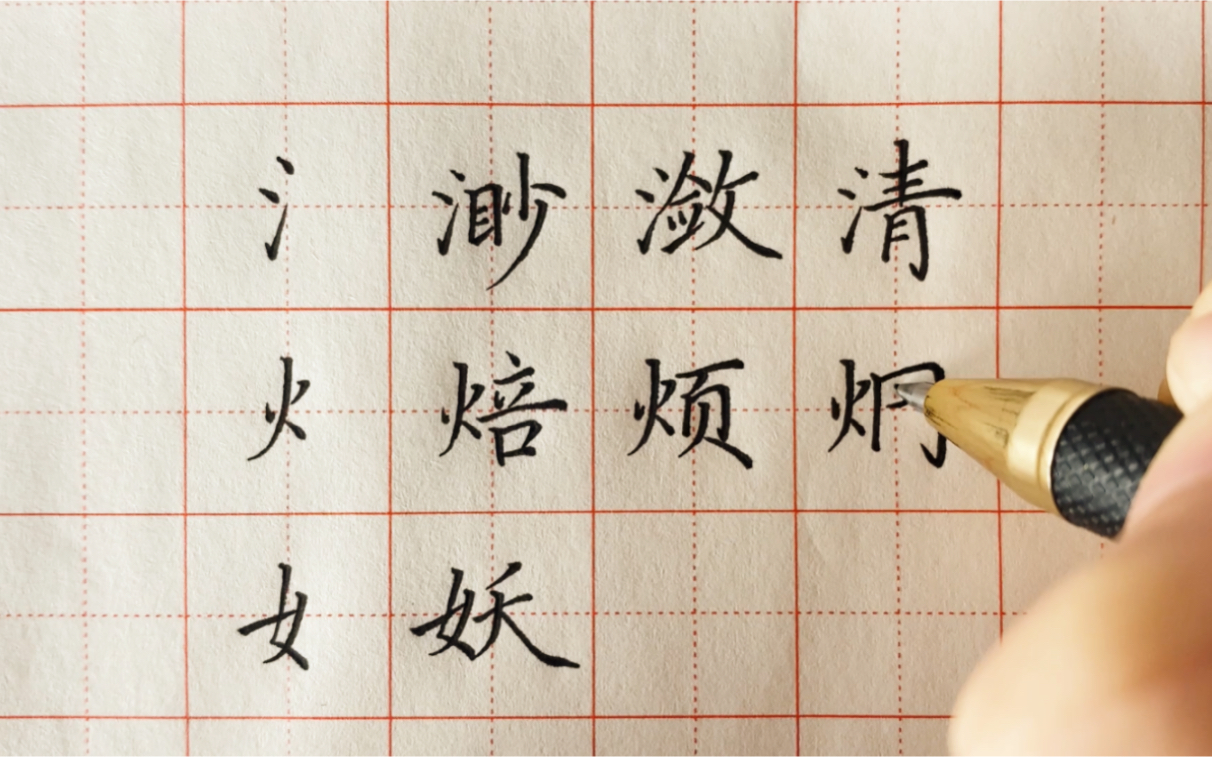 氵渺潋清
火焙烦炯
女妖